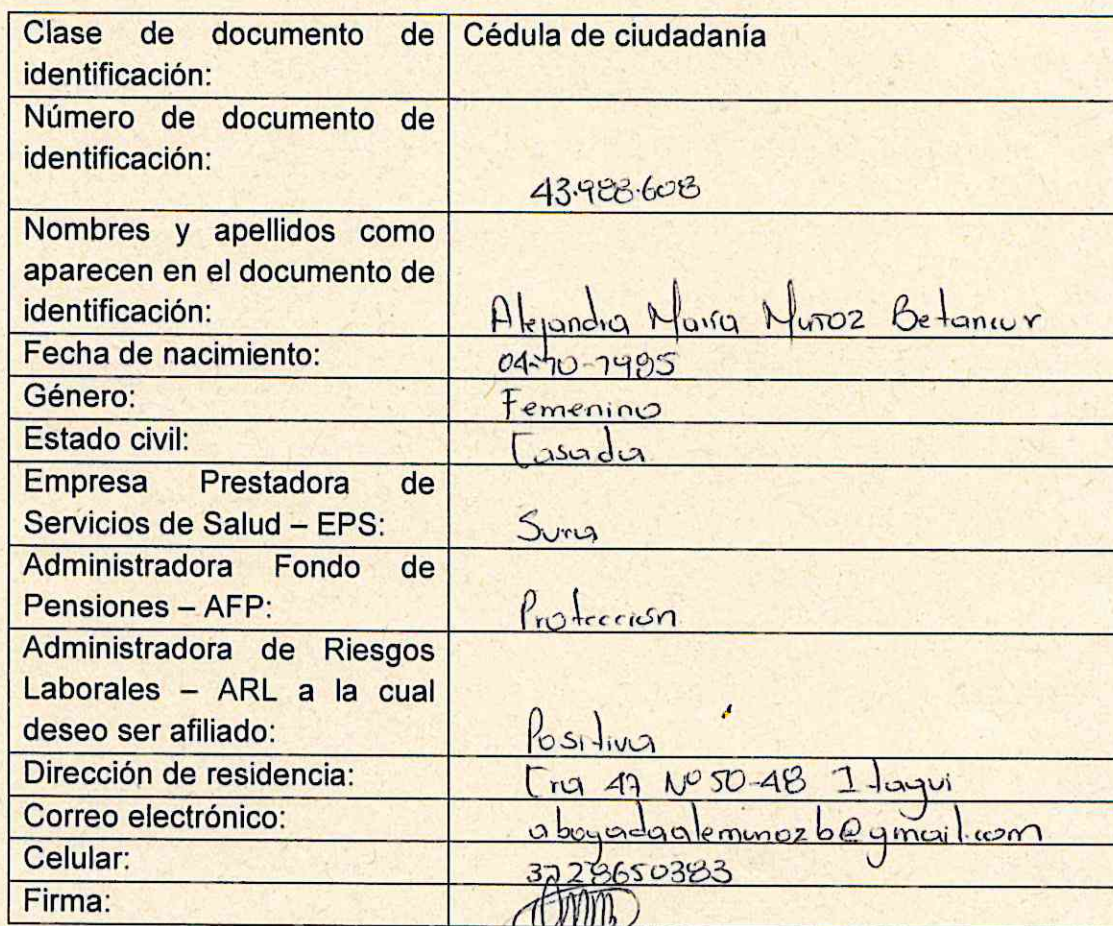 Clase de documento de Cédula de ciudadanía
identificación:
Número de documento de
identificación:
43.983.608
Nombres y apellidos como
aparecen en el documento de
identificación: Alejandra María Muñoz Betancur
Fecha de nacimiento: 04-10-1985
Género: Femenino
Estado civil: Casada
Empresa Prestadora de
Servicios de Salud – EPS: Sura
Administradora Fondo de
Pensiones – AFP: Protección
Administradora de Riesgos
Laborales – ARL a la cual
deseo ser afiliado: Positiva
Dirección de residencia: Cra 47 Nº 50-48 Itagui
Correo electrónico: abogadaalemunozb@gmail.com
Celular:
Firma: